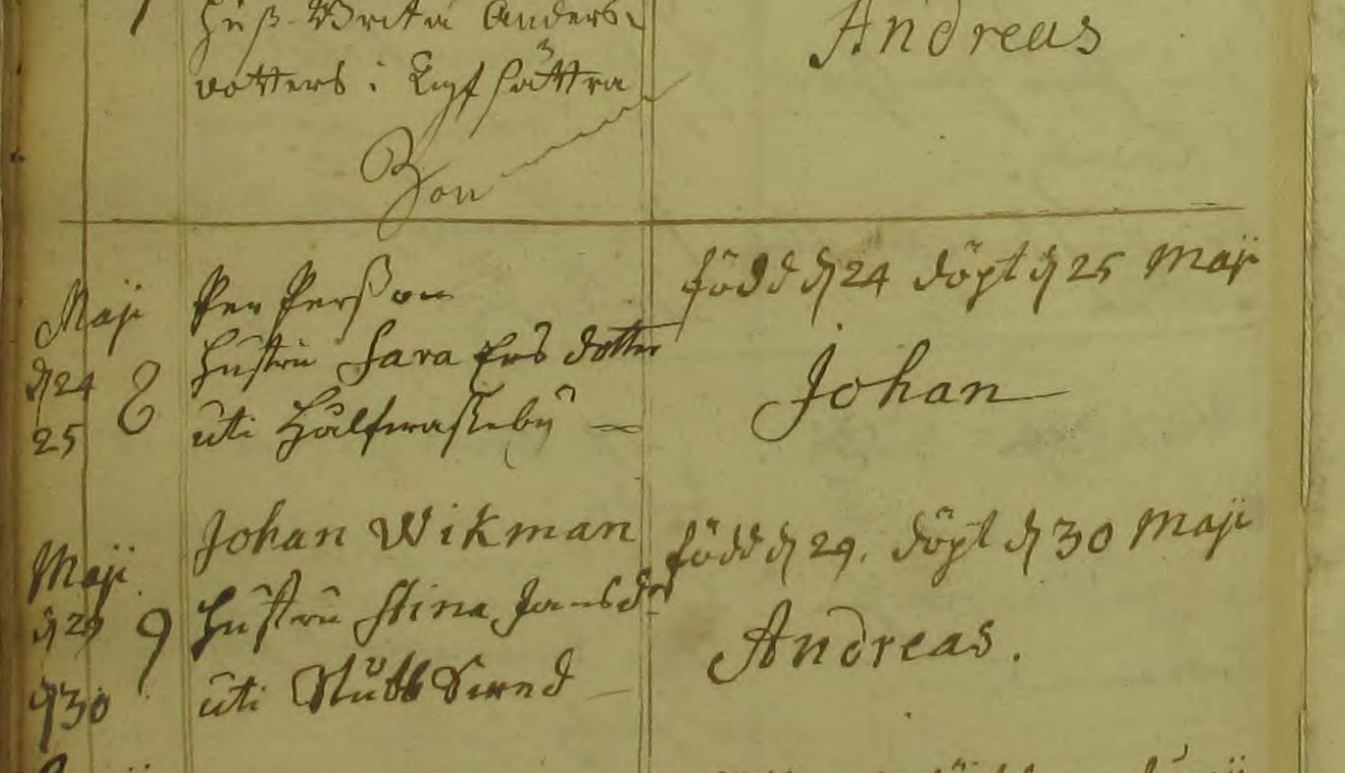 Huß Brita Anders
dotters i Sättra
Zon
Andreas
Maji
d 24
25
8
Per Perßon
Hustru Sara Ers dotter
uti Hälfwaßeby
född d 24 döpt d 25 Maji
Johan
Maji
d 29
d 30
9
Johan Wikman
Hustru Stina Jansdr
uti Stubb
född d 29. döpt d 30 Maji
Andreas.